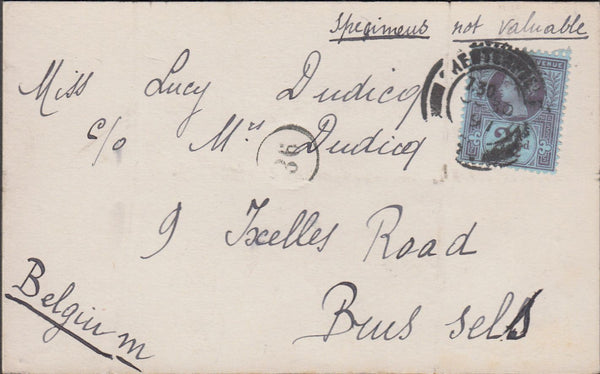 Specimens not valuable
Miss Lucy Dudicq
c/o Mrs Dudicq
36
9 Ixelles Road
Brussels
Belgium
REVENUE
730